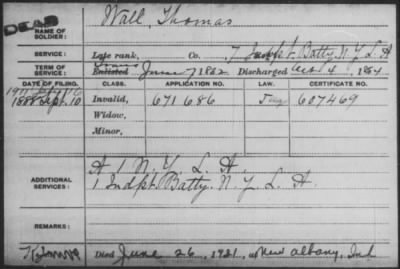 DEAD
NAME OF SOLDIER: Wall, Thomas
SERVICE: Late rank, Co. 7 Indpt. Batty. N.Y.L.A.
TERM OF SERVICE: Enlisted June 7 1862 Discharged Oct 4, 1864
DATE OF FILING. CLASS. APPLICATION NO. LAW. CERTIFICATE NO.
1888 Sept. 10 Invalid, 671686 607469
Widow,
Minor,
ADDITIONAL SERVICES: A 1 N.Y.L.A.
1 Indpt. Batty. N.Y.L.A.
REMARKS:
Died June 26, 1921, at New Albany, Ind